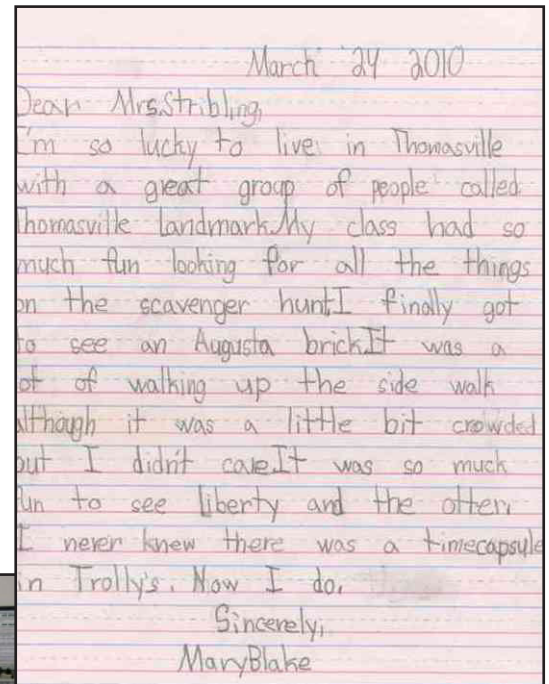 March 24 2010
Dear Mrs.Stribling,
I'm so lucky to live in Thomasville
with a great group of people called
Thomasville Landmark.My class had so
much fun looking for all the things
on the scavenger hunt.I finally got
to see an Augusta brick.It was a
ot of walking up the side walk
although it was a little bit crowded
but I didn't care.It was so much
fun to see liberty and the otter.
I never knew there was a timecapsule
in Trolly's. Now I do.
Sincerely,
MaryBlake